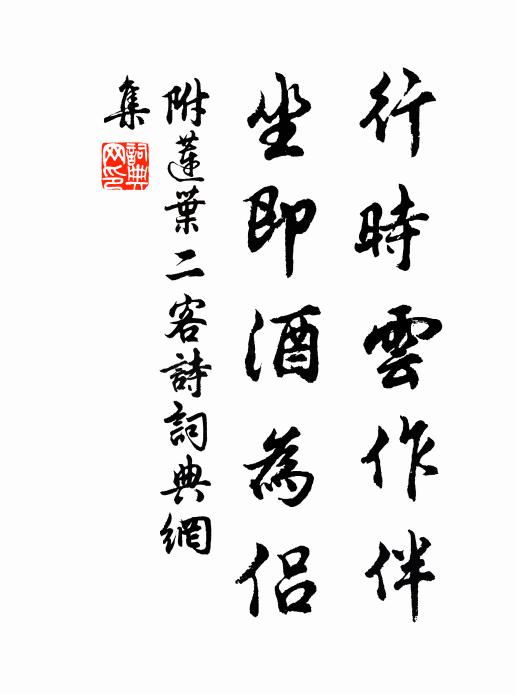 行時雲作伴
坐即酒為侶
附蓮葉二客詩詞典網
集
詞典網印